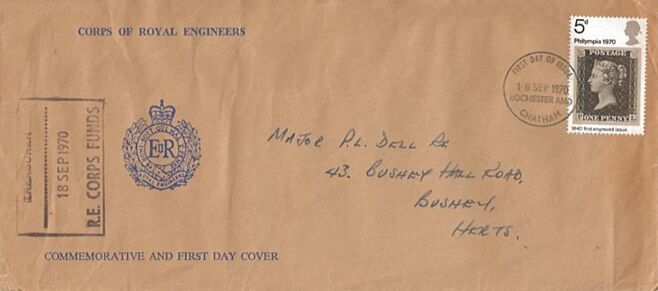 CORPS OF ROYAL ENGINEERS
5d
Philympia 1970
POSTAGE
ONE PENNY
1840 first engraved issue
FIRST DAY OF ISSUE
18 SEP 1970
ROCHESTER AND
CHATHAM
TREASURER
18 SEP 1970
R.E. CORPS FUNDS
HONI SOIT QUI MAL Y PENSE
EIIR
ROYAL ENGINEERS
MAJOR P.L. DELL RE
43. BUSHEY HALL ROAD,
BUSHEY,
HERTS.
COMMEMORATIVE AND FIRST DAY COVER